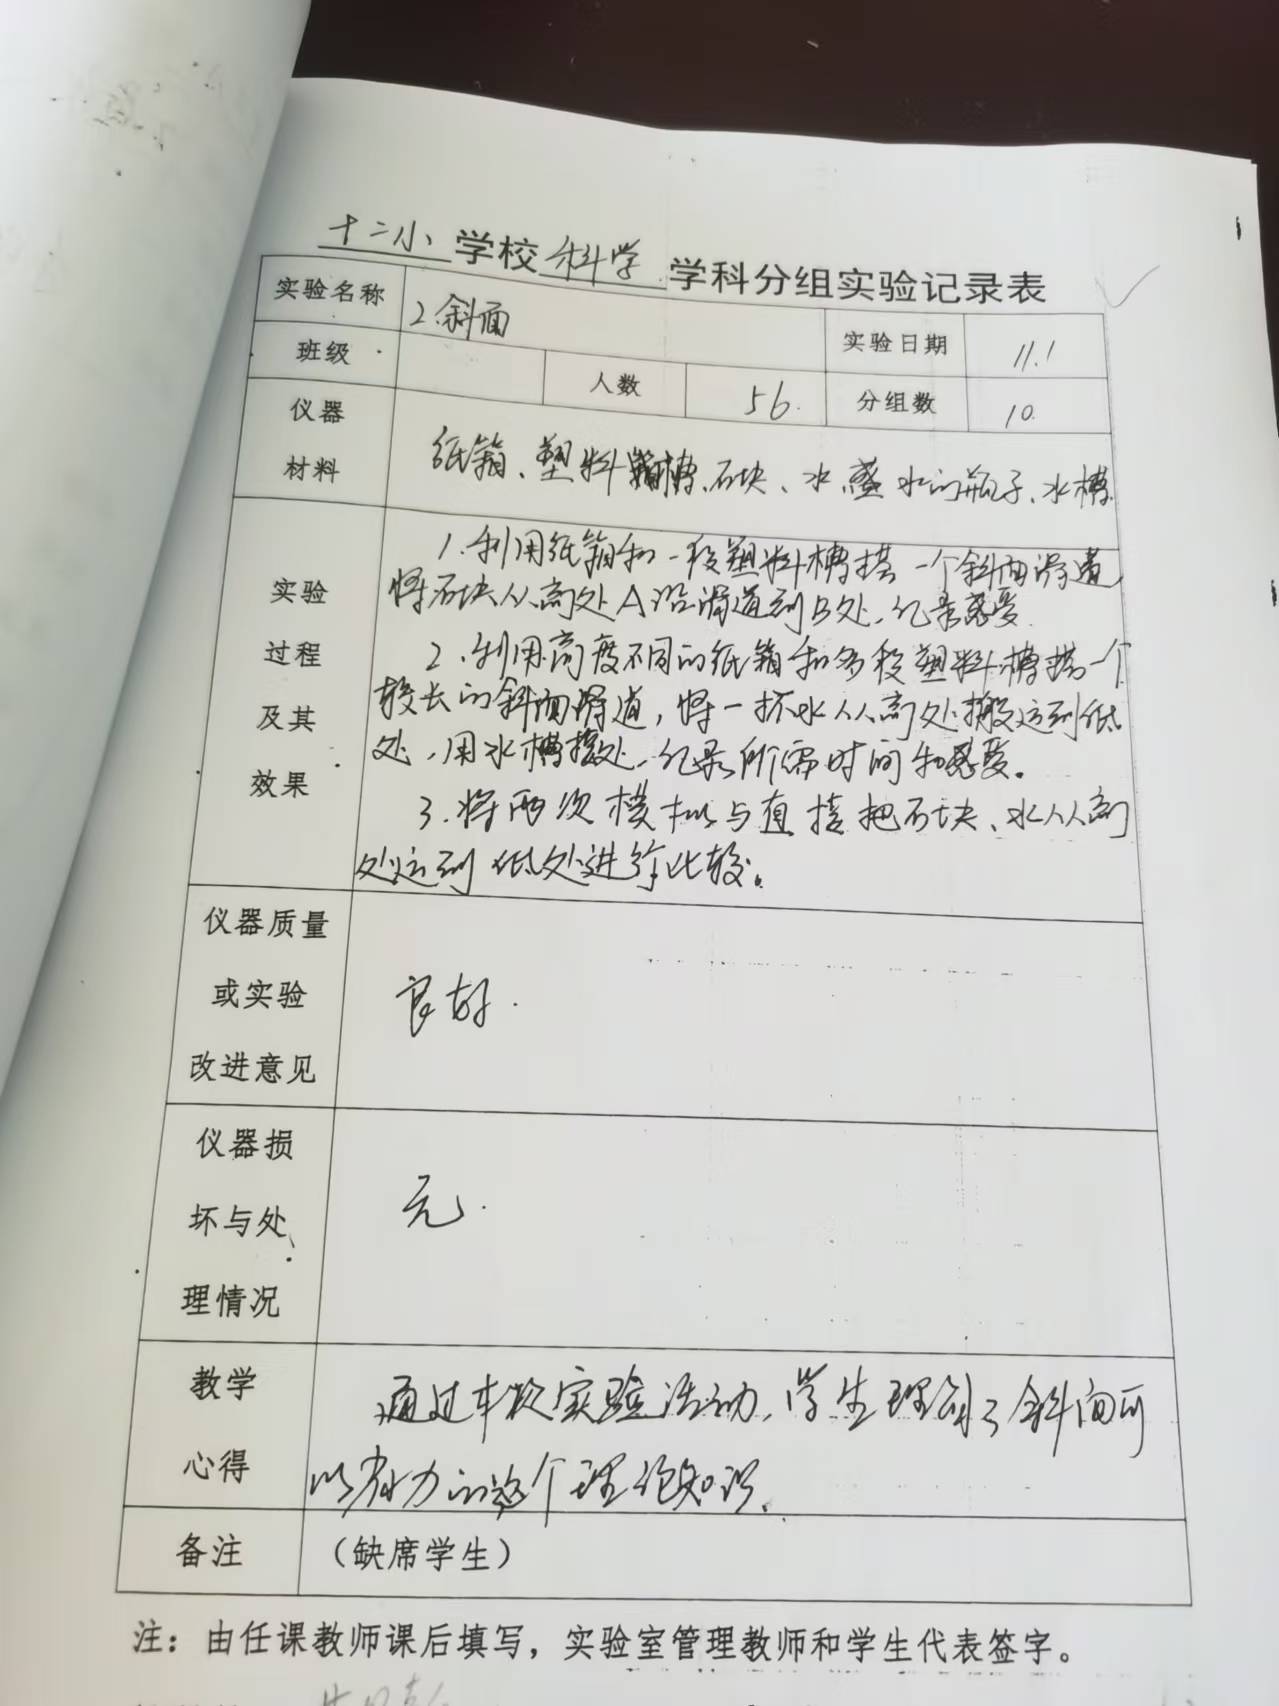 十二小学校科学学科分组实验记录表
实验名称 2.斜面 实验日期 11.1
班级 人数 56. 分组数 10.
仪器材料 纸箱、塑料槽、石块、水、盛水的瓶子、水槽.
实验过程及其效果
1.利用纸箱和一段塑料槽搭一个斜面滑道
将石块从高处A沿滑道到B处,记录感受.
2.利用高度不同的纸箱和多段塑料槽搭一个
较长的斜面滑道,将一杯水从高处搬运到低
处,用水槽接处,记录所需时间和感受。
3.将两次模拟与直接把石块、水从高
处运到低处进行比较。
仪器质量
或实验
改进意见
良好.
仪器损
坏与处
理情况
无.
教学
心得
通过本次实验活动,学生理到了斜面可
以省力的这个理论知识.
备注 (缺席学生)
注：由任课教师课后填写，实验室管理教师和学生代表签字。